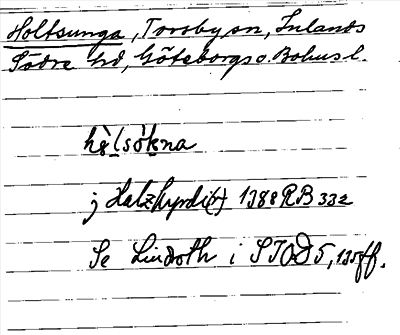 Holtsunga, Torsby sn, Inlands
Södre hd, Göteborgs o. Bohus l.
hò̀lsò̀kna
j Halzhyrdi(r) 1388 RB 332
Se Lindroth i STOD 5, 135 ff.